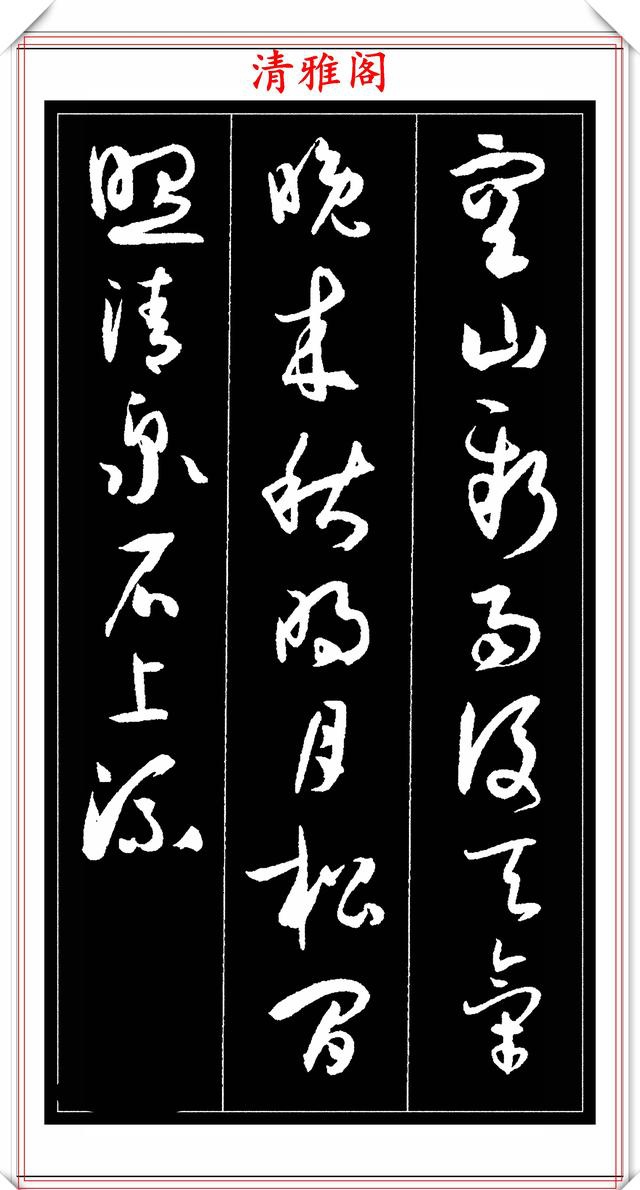 清雅阁
空山新雨後天氣
晚来秋明月松間
照清泉石上流